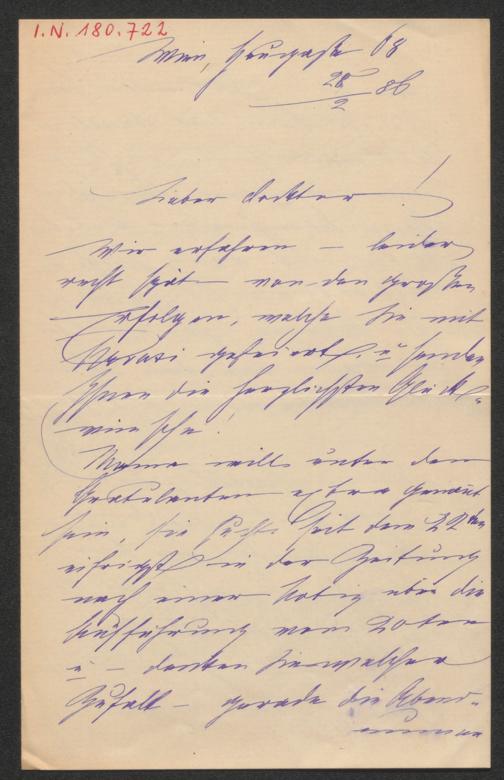 I.N. 180.722
Wien, Heugasse 68
28/2 86
Lieber Doktor!
Wir erfahren – leider
recht spät – von den großen
Erfolgen, welche Sie mit
gefeiert, u senden
Ihnen die herzlichsten Glück-
wünsche!
Mama will unter den
Gratulanten extra genannt
sein, sie sucht seit dem 22ten
eifrigst in der Zeitung
nach einer Notiz über die
Aufführung vom 20ten
u – denken Sie welcher
Zufall – gerade die Abend-